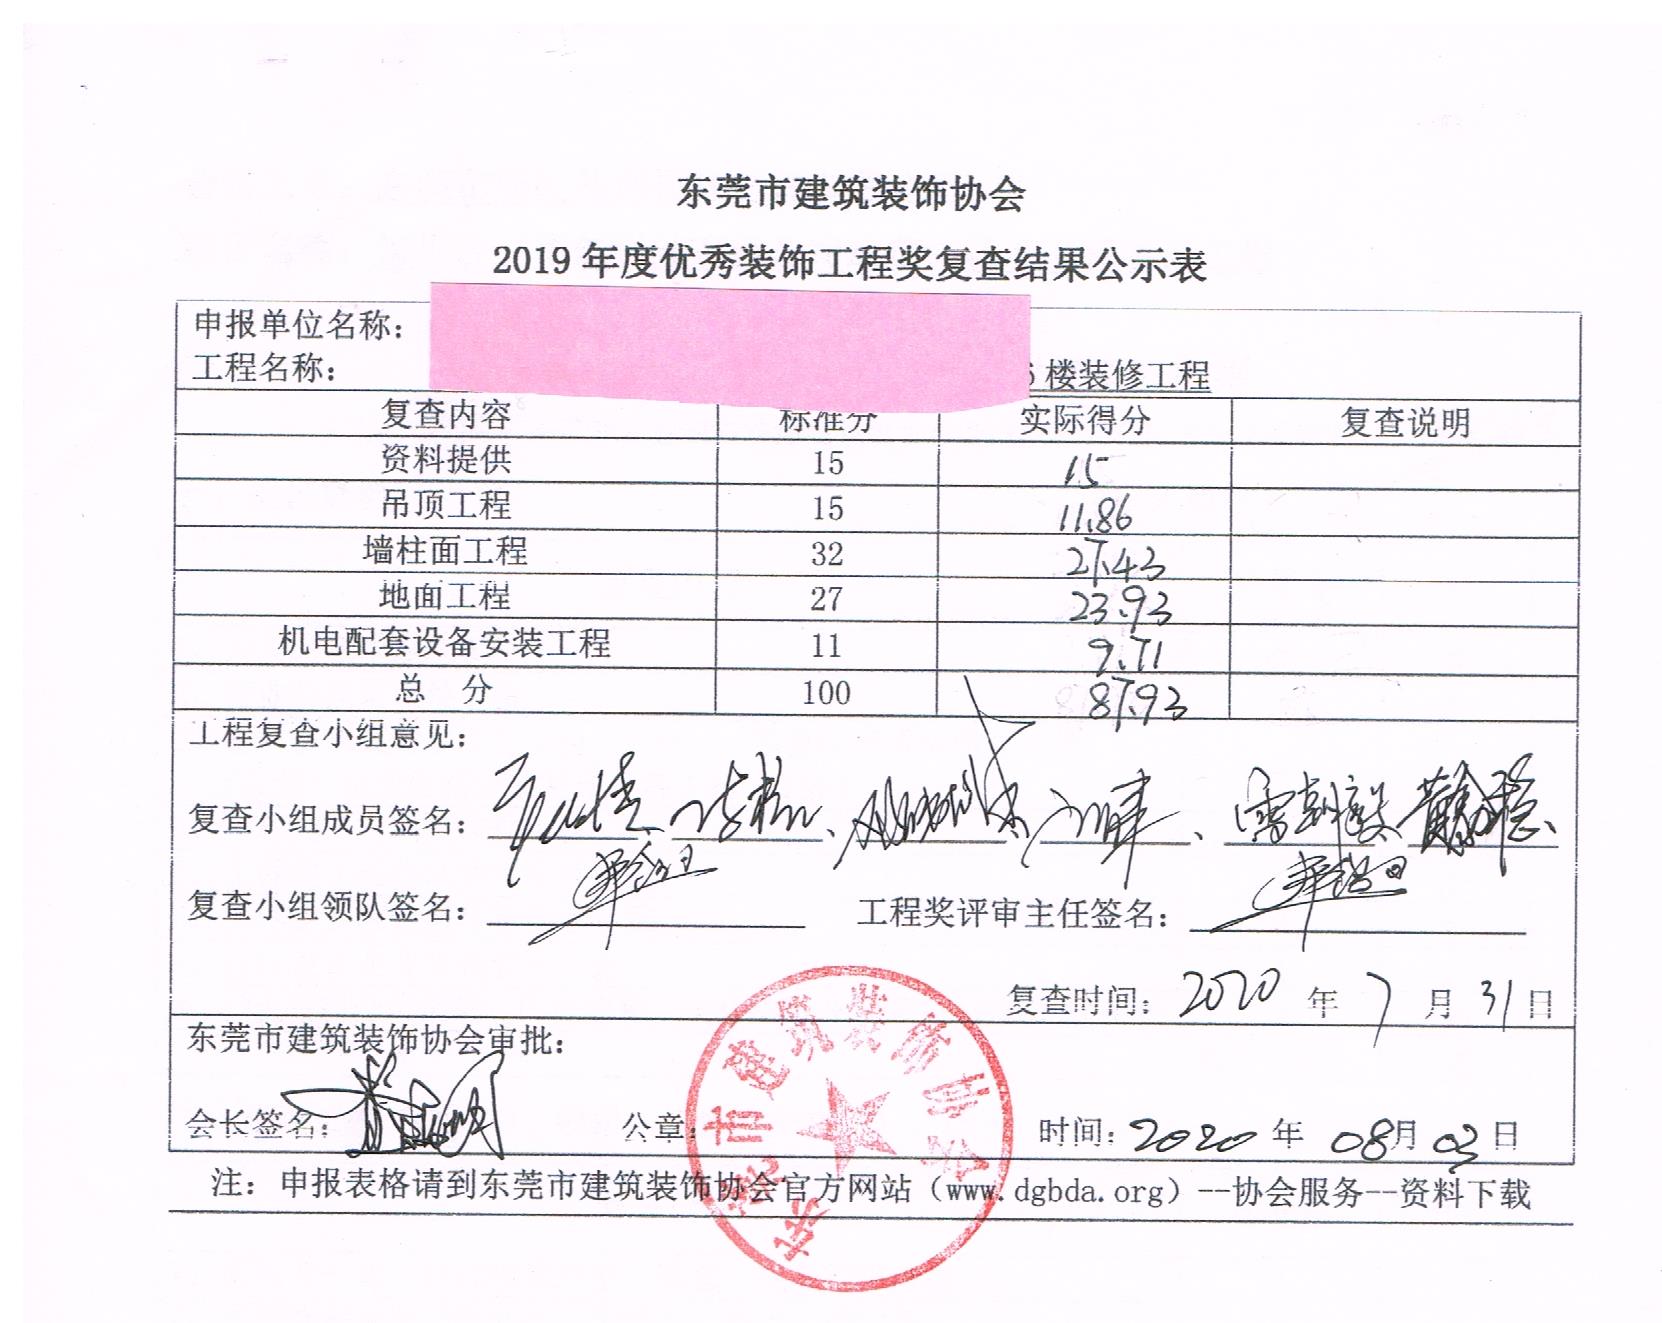 东莞市建筑装饰协会
2019 年度优秀装饰工程奖复查结果公示表
申报单位名称：
工程名称： 楼装修工程
复查内容 标准分 实际得分 复查说明
资料提供 15 15
吊顶工程 15 11.86
墙柱面工程 32 27.43
地面工程 27 23.93
机电配套设备安装工程 11 9.71
总 分 100 87.93
工程复查小组意见：
复查小组成员签名：
复查小组领队签名： 工程奖评审主任签名：
复查时间：2020 年 7 月 31 日
东莞市建筑装饰协会审批：
会长签名： 公章： 时间：2020 年 08月 03 日
注：申报表格请到东莞市建筑装饰协会官方网站（www.dgbda.org）--协会服务--资料下载
东莞市建筑装饰协会